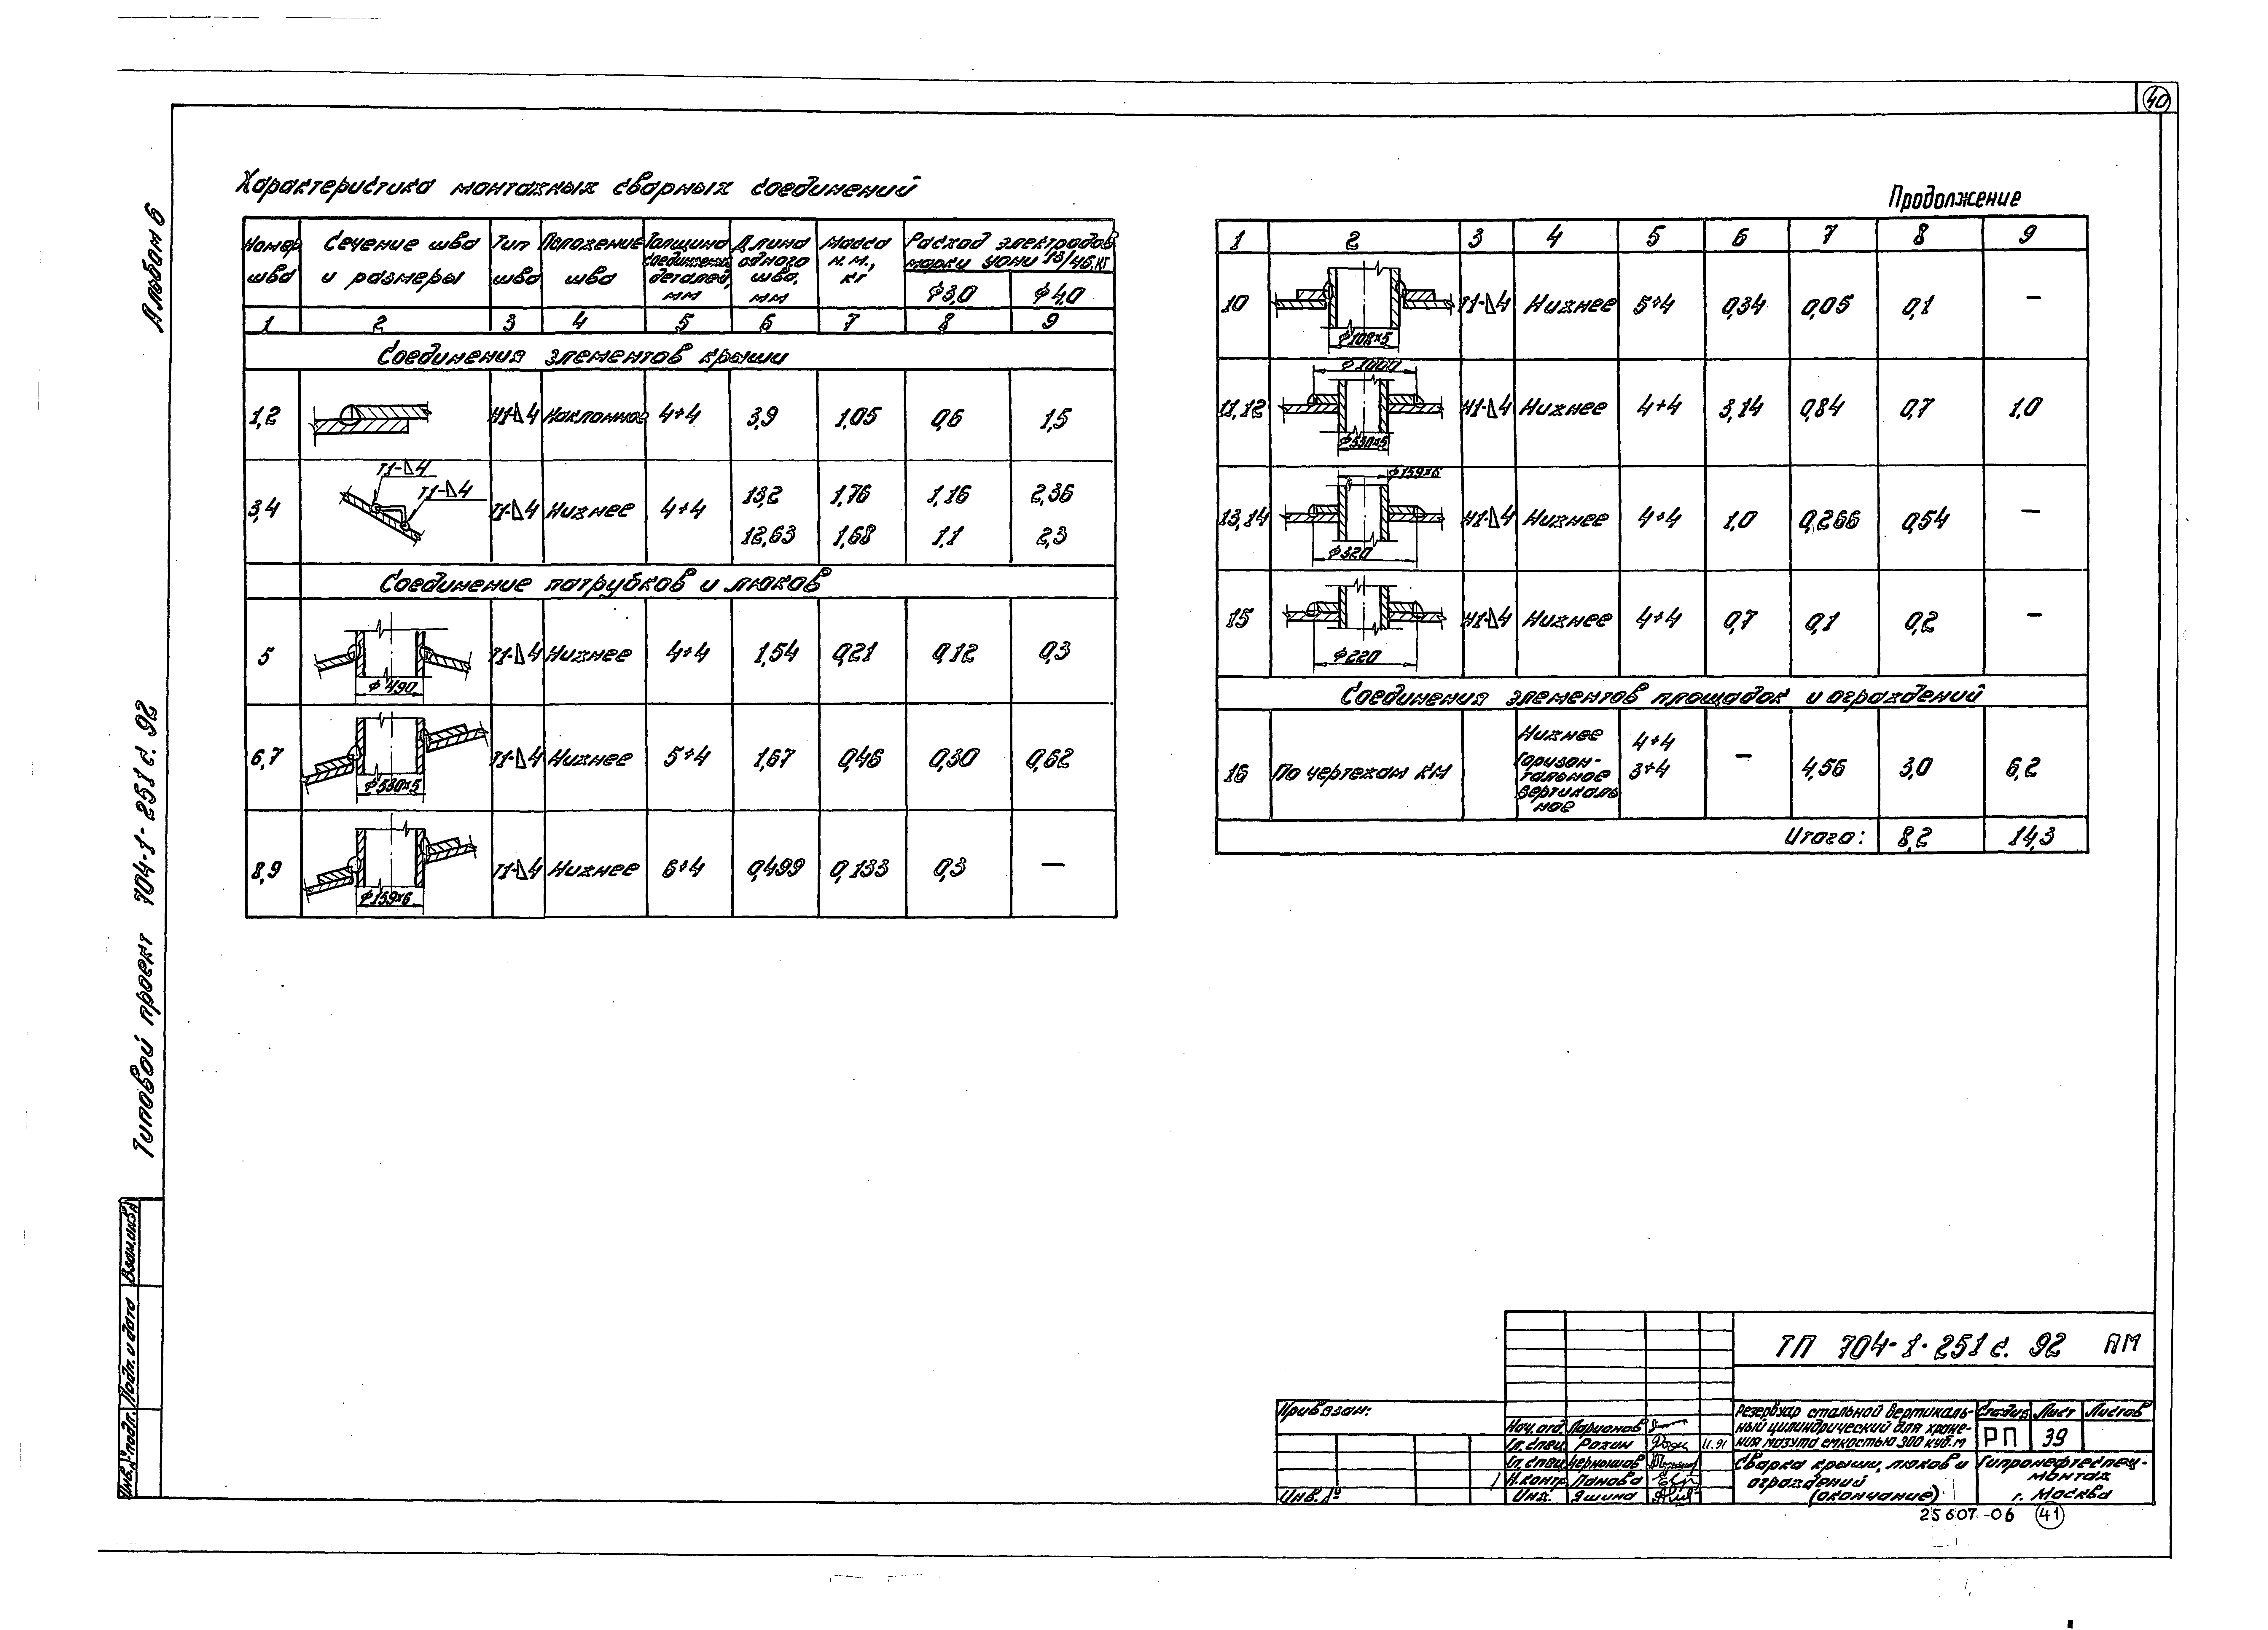 40
Альбом 6
Типовой проект 704-1-251 с. 92
Характеристика монтажных сварных соединений
Номер шва | Сечение шва и размеры | Тип шва | Положение шва | Толщина соединяемых деталей, мм | Длина одного шва, мм | Масса н.м., кг | Расход электродов марки УОНИ 13/45, кг
ϕ3,0 | ϕ4,0
1 | 2 | 3 | 4 | 5 | 6 | 7 | 8 | 9
Соединения элементов крыши
1,2 | Н1-⊿4 | Наклонное | 4+4 | 3,9 | 1,05 | 0,6 | 1,5
Т1-⊿4
Т1-⊿4
3,4 | Т1-⊿4 | Нижнее | 4+4 | 13,2 | 1,76 | 1,16 | 2,36
12,63 | 1,68 | 1,1 | 2,3
Соединение патрубков и люков
5 | ϕ490 | Т1-⊿4 | Нижнее | 4+4 | 1,54 | 0,21 | 0,12 | 0,3
6,7 | ϕ530×5 | Т1-⊿4 | Нижнее | 5+4 | 1,67 | 0,46 | 0,30 | 0,62
8,9 | ϕ159×6 | Т1-⊿4 | Нижнее | 6+4 | 0,499 | 0,133 | 0,3 | —
Продолжение
1 | 2 | 3 | 4 | 5 | 6 | 7 | 8 | 9
10 | ϕ108×5 | Т1-⊿4 | Нижнее | 5+4 | 0,34 | 0,05 | 0,1 | —
11,12 | ϕ1000 ϕ530×5 | Н1-⊿4 | Нижнее | 4+4 | 3,14 | 0,84 | 0,7 | 1,0
13,14 | ϕ159×6 ϕ320 | Н1-⊿4 | Нижнее | 4+4 | 1,0 | 0,266 | 0,54 | —
15 | ϕ220 | Н1-⊿4 | Нижнее | 4+4 | 0,7 | 0,1 | 0,2 | —
Соединения элементов площадок и ограждений
16 | По чертежам КМ | Нижнее Горизонтальное вертикальное | 4+4 3+4 | — | 4,56 | 3,0 | 6,2
Итого: | 8,2 | 14,3
Взам.инв.№
Подп. и дата
Инв.№ подп.
ТП 704-1-251 с. 92 АМ
Привязан:
Инв. №
Нач. отд. Ларионов
Гл. спец. Рохин 11.91
Гл. спец. Чернышов
Н.контр. Панова
Инж. Яшина
Резервуар стальной вертикаль-
ный цилиндрический для хране-
ния мазута емкостью 300 куб.м
Стадия | Лист | Листов
РП | 39
Сварка крыши, люков и
ограждений
(окончание)
Гипронефтеспец-
монтаж
г. Москва
25607-06 41